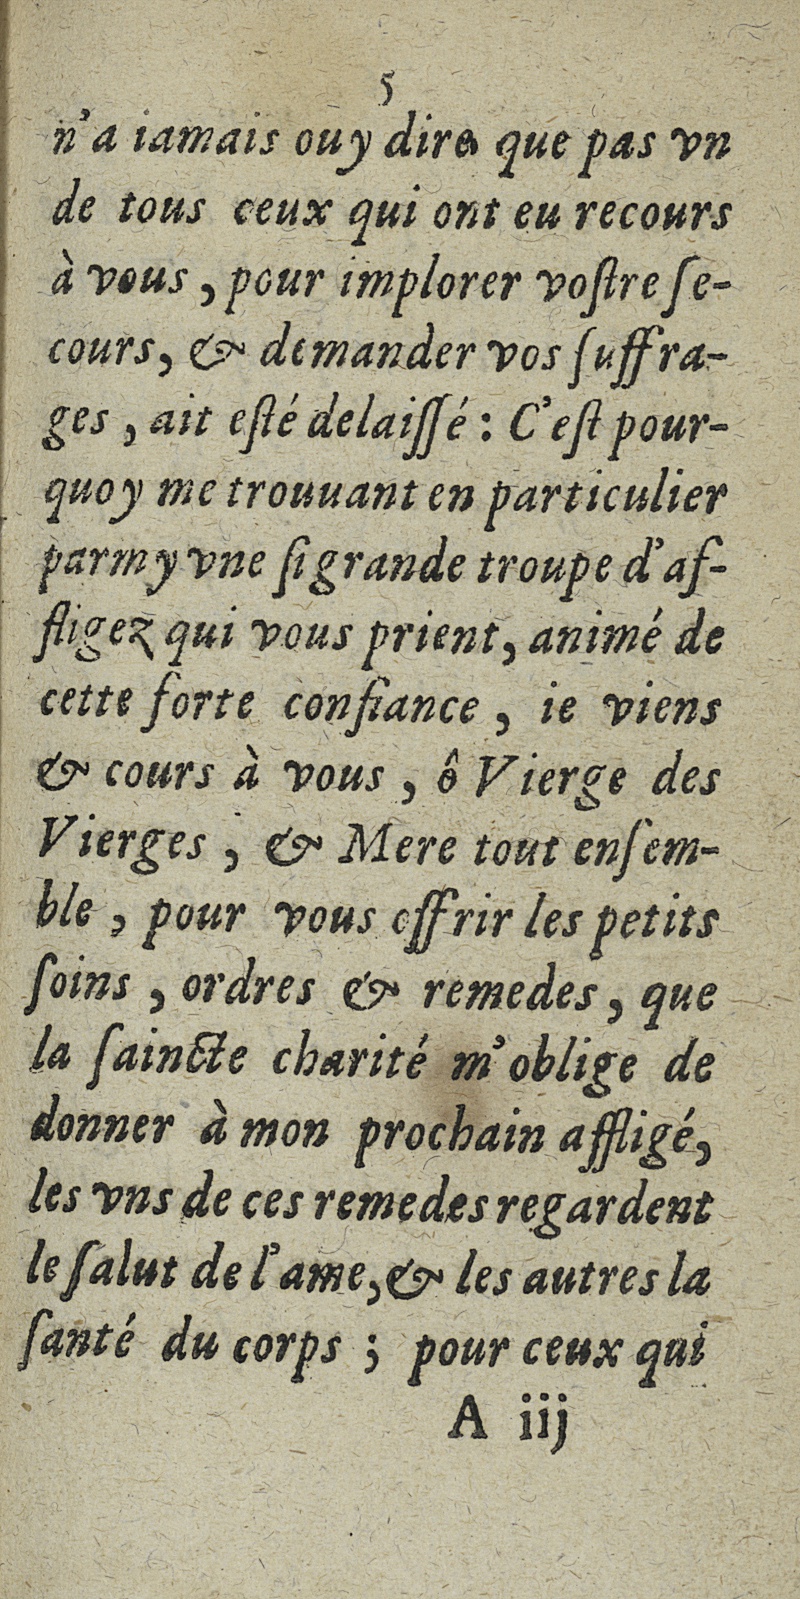 5
n'a iamais ouy dire que pas vn
de tous ceux qui ont eu recours
à vous, pour implorer voſtre ſe-
cours, & demander vos ſuffra-
ges, ait eſté delaiſſé : C'eſt pour-
quoy me trouuant en particulier
parmy vne ſi grande troupe d'af-
fligez qui vous prient, animé de
cette forte confiance, ie viens
& cours à vous, ô Vierge des
Vierges, & Mere tout enſem-
ble, pour vous offrir les petits
ſoins, ordres & remedes, que
la ſaincte charité m'oblige de
donner à mon prochain affligé,
les vns de ces remedes regardent
le ſalut de l'ame, & les autres la
ſanté du corps ; pour ceux qui
A iij